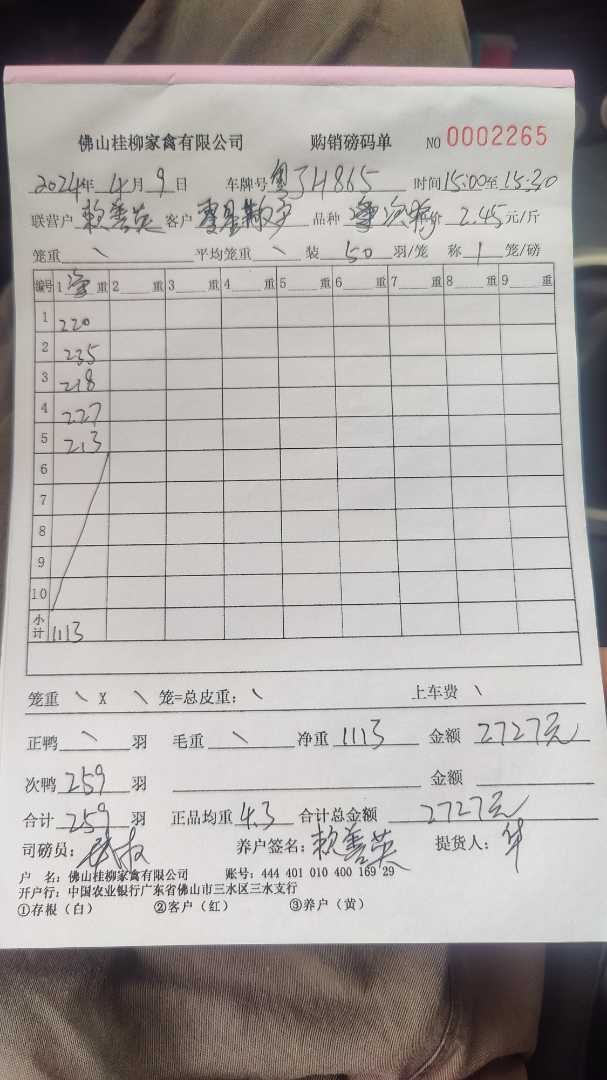 佛山桂柳家禽有限公司 购销磅码单 NO 0002265
2024年 4月 9日 车牌号粤JH865 时间15:00至15:30
联营户 赖善英 客户 品种 价 2.45元/斤
笼重 \ 平均笼重 \ 装 50 羽/笼 称 1 笼/磅
编号 1 重 2 重 3 重 4 重 5 重 6 重 7 重 8 重 9 重
1 220
2 235
3 218
4 227
5 213
6
7
8
9
10
小计 1113
笼重 \ X \ 笼=总皮重: \ 上车费 \
正鸭 \ 羽 毛重 \ 净重 1113 金额 2727元
次鸭 259 羽 金额
合计 259 羽 正品均重 4.3 合计总金额 2727元
司磅员: 养户签名: 赖善英 提货人: 华
户 名: 佛山桂柳家禽有限公司 账号: 444 401 010 400 169 29
开户行: 中国农业银行广东省佛山市三水区三水支行
①存根(白) ②客户(红) ③养户(黄)